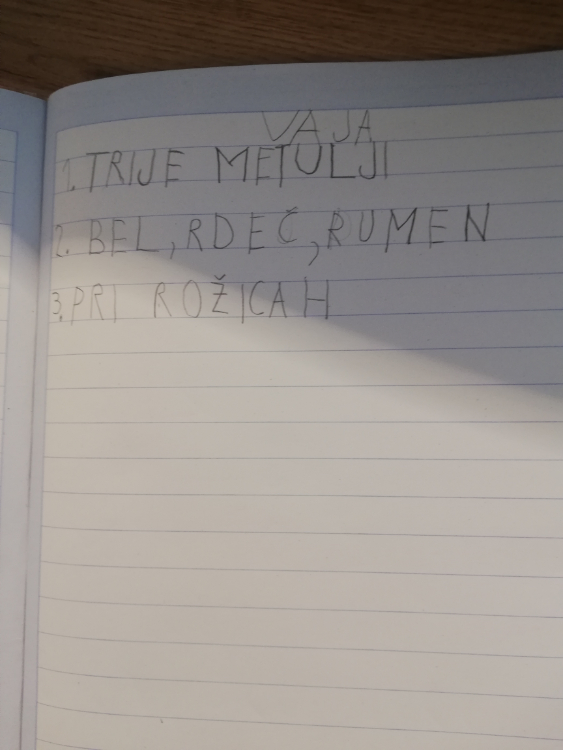 VAJA
1. TRIJE METULJI
2. BEL, RDEČ, RUMEN
3. PRI ROŽICAH